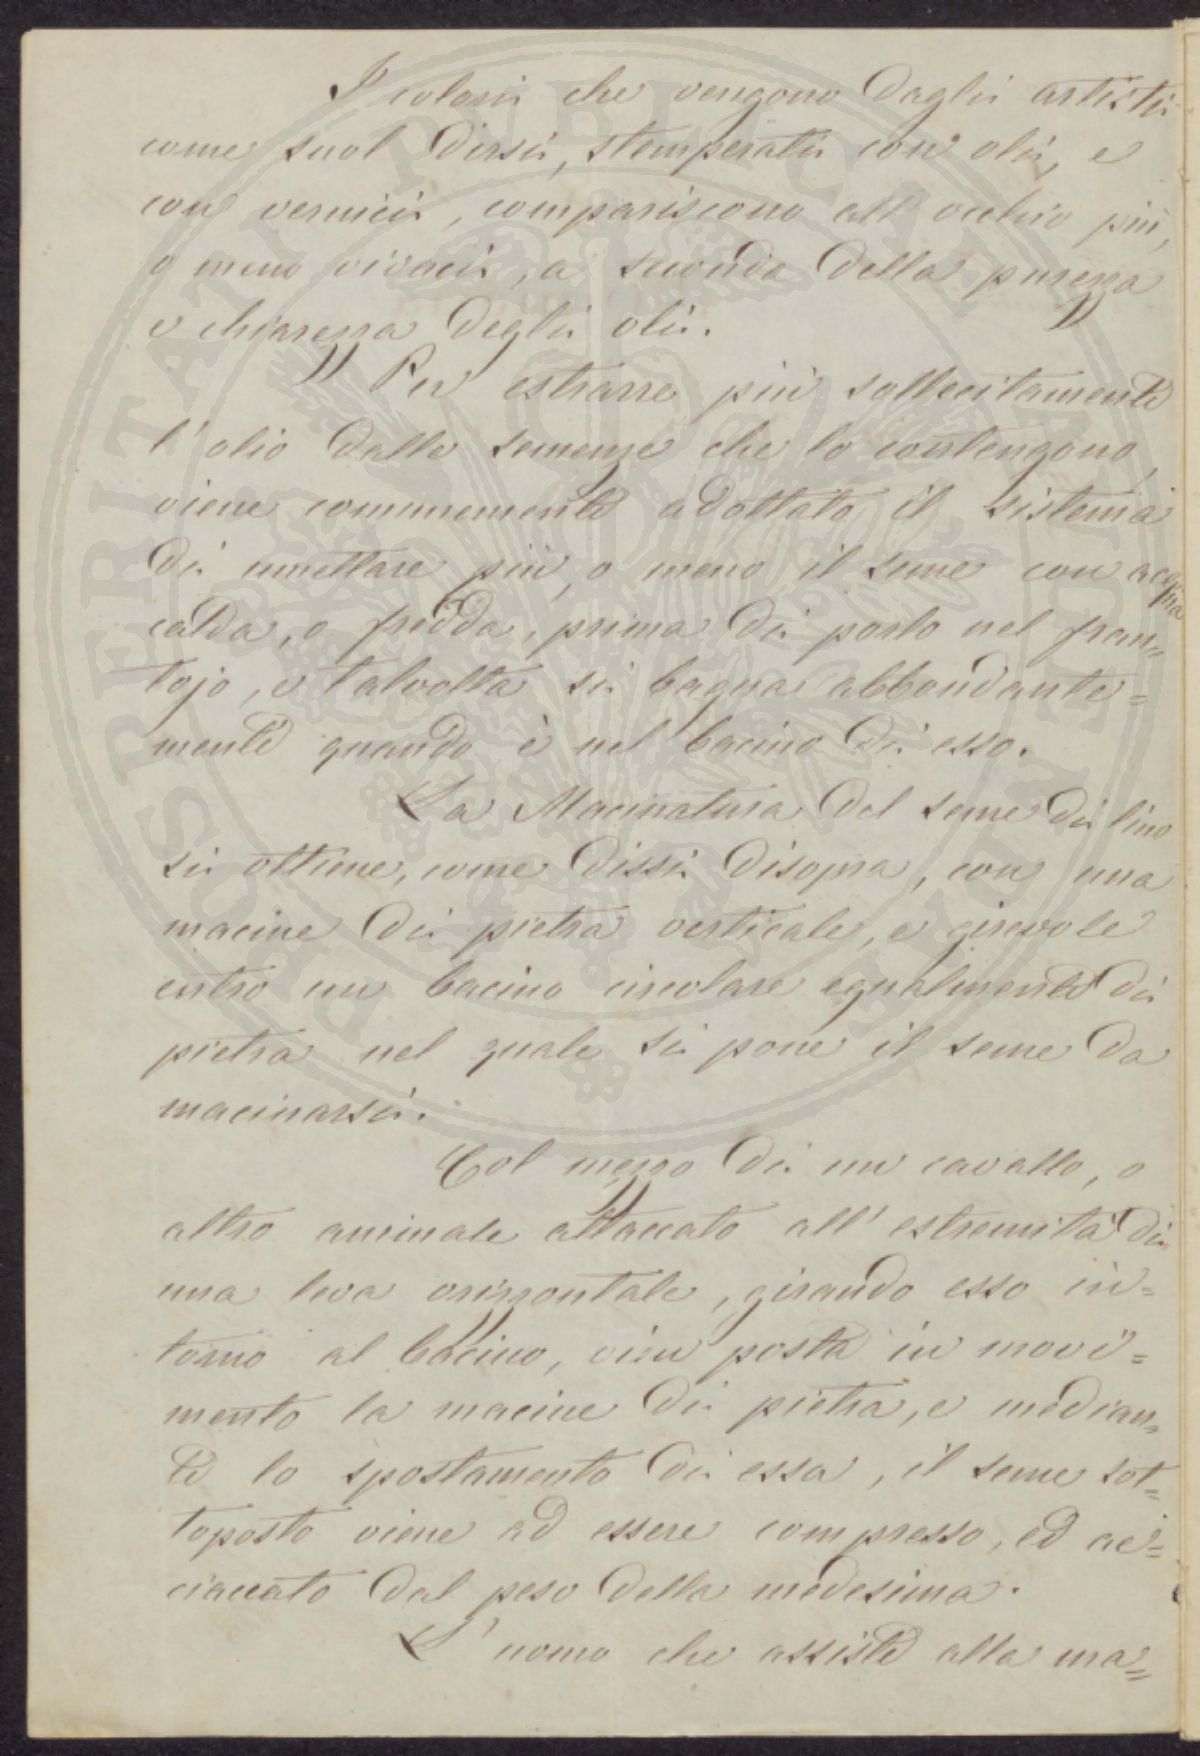 I colori che vengono dagli artisti
come suol dirsi, stemperati con oli, e
con vernici, compariscono all'occhio più,
o meno vivaci, a seconda della purezza
e chiarezza degli oli.
Per estrarre più sollecitamente
l'olio dalle semenze che lo contengono,
viene comunemente adottato il sistema
di umettare più, o meno il seme con acqua
calda, o fredda, prima di porlo nel fran=
tojo, e talvolta si bagna abbondante=
mente quando è nel bacino di esso.
La Macinatura del seme di lino
si ottiene, come dissi disopra, con una
macine di pietra verticale, e girevole
entro un bacino circolare egualmente di
pietra nel quale si pone il seme da
macinarsi.
Col mezzo di un cavallo, o
altro animale attaccato all'estremità di
una leva orizzontale, girando esso in=
torno al bacino, vien posta in movi=
mento la macine di pietra, e median=
te lo spostamento di essa, il seme sot=
toposto viene ad essere compresso, ed ac=
ciaccato dal peso della medesima.
L'uomo che assiste alla ma=
PROSPERITATI PVBLICAE AVGENDAE